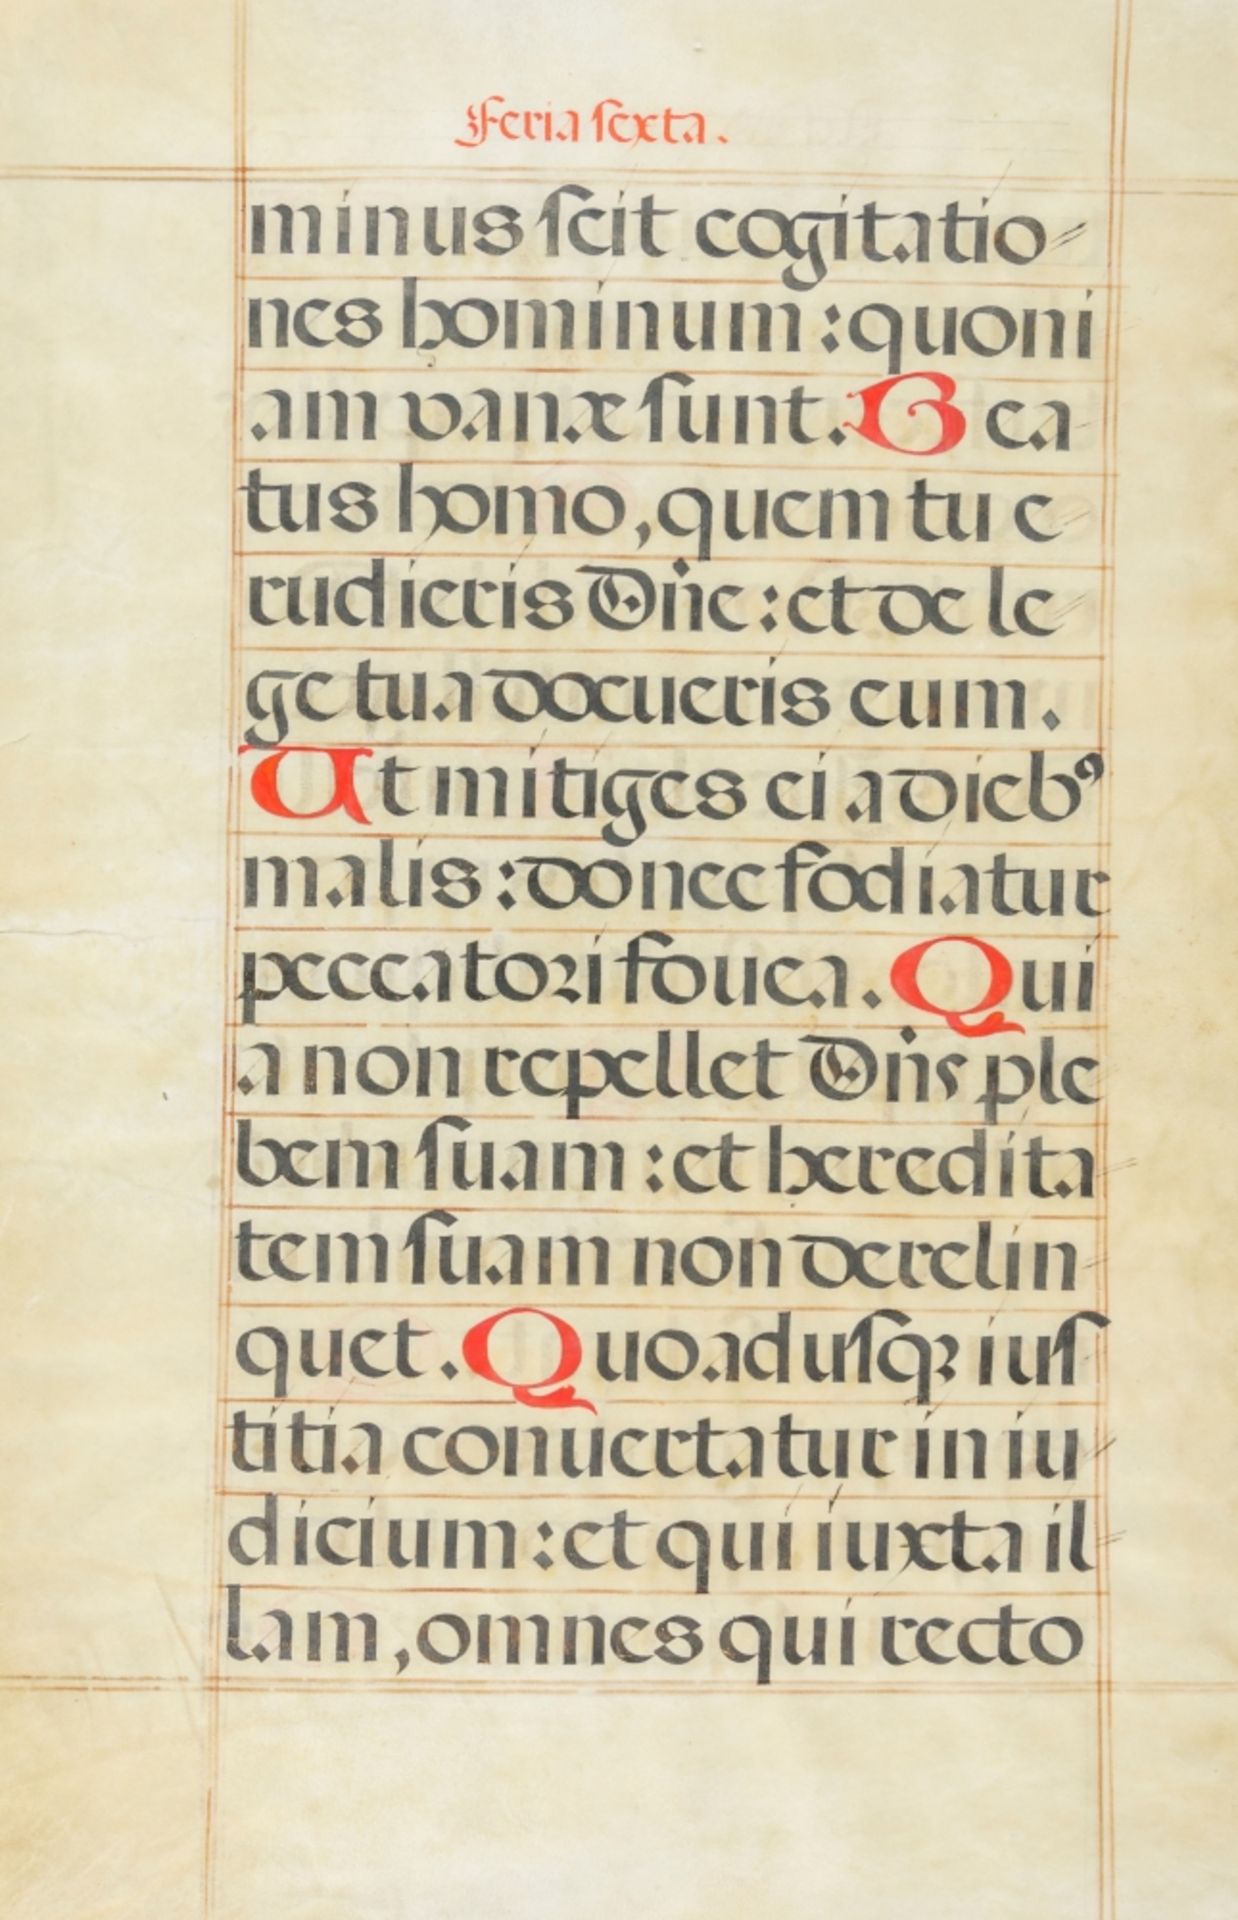 Feria ſexta.
minus ſcit cogitatio=
nes hominum : quoni
am vanæ ſunt. Bea
tus homo, quem tu e=
rudieris Dñe : et de le=
ge tua docueris eum.
Ut mitiges ei a diebꝰ
malis : donec fodiatur
peccatori fouea. Qui
a non repellet Dñs ple
bem ſuam : et heredita=
tem ſuam non derelin-
quet. Quoaduſqꝫ iuſ
titia conuertatur in iu=
dicium : et qui iuxta il=
lam, omnes qui recto